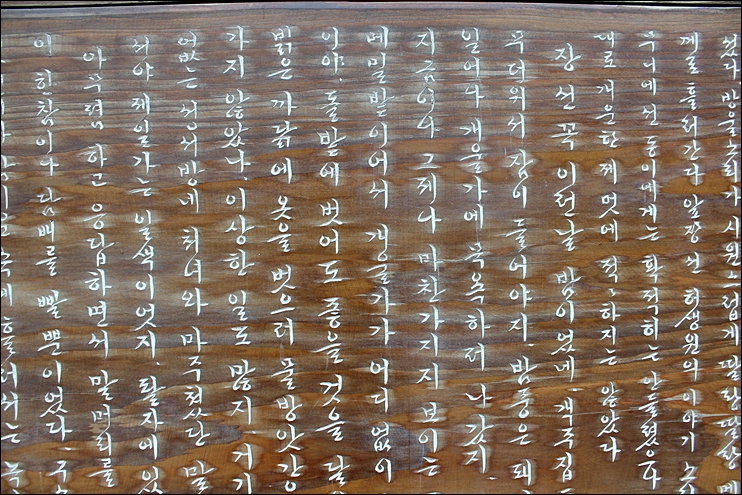 썼다 방울소리가 시원스럽게 딸랑딸랑 메
께로 흘러간다 앞장선 허생원의 이야기 소
꾸니에선 동이에게는 확적히는 안들렸으나
대로 개운한 제멋에 적적하지는 않았다
장 선 꼭 이런날 밤이었네 객주집
무더워서 잠이 들어야지. 밤중은 돼
일어나 개울가에 목욕하러 나갔지
지금이나 그제나 마찬가지지 보이는
메밀밭이어서 개울가가 어디 없이
이야. 돌밭에 벗어도 좋을 것을 달
밝은 까닭에 옷을 벗으러 물방앗간
가지 않았나. 이상한 일도 많지. 거기
없는 성서방네 처녀와 마주쳤단 말
서야 제일가는 일색이었지. 팔자에 있
아무렴 하고 응답하면서 말머리를
이 한참이나 담배를 빨 뿐이었다. 구